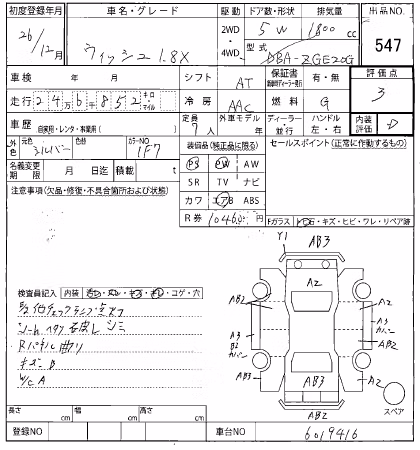 初度登録年月
車名・グレード
駆動
ドア数・形状
排気量
出品NO.
26/12月
ウィッシュ 1.8X
2WD
4WD
5W
1800 cc
型式
DBA-ZGE20G
547
車検 年 月
シフト
AT
保証書
有・無
評価点
3
走行
24万6千852
キロ
マイル
冷房
AAC
燃料
G
車歴
自家用・レンタ・事業用( )
定員
7人
外車モデル
年
ディーラー・並行
ハンドル
左・右
内装評価
D
外色
元色
シルバー
色替
カラーNO
1F7
装備品(純正品に限る)
セールスポイント(正常に作動するもの)
PS PW AW
名義変更期限
月 日迄
積載
t
SR TV ナビ
注意事項(欠品・修復・不具合箇所および状態)
カワ エアB ABS
R券
10460円
Fガラス トビ石・キズ・ヒビ・ワレ・リペア跡
検査員記入
内装
コゲ・穴
シート
シミ
Rパネル曲り
キズ
W/C A
Y1
AB3
A2
AB2
A2
A3
A3
B2
カバー
カバー
AB2
AB3
AB3
A2
AB2
スペア
長さ cm
幅 cm
高さ cm
登録NO
車台NO
6019416